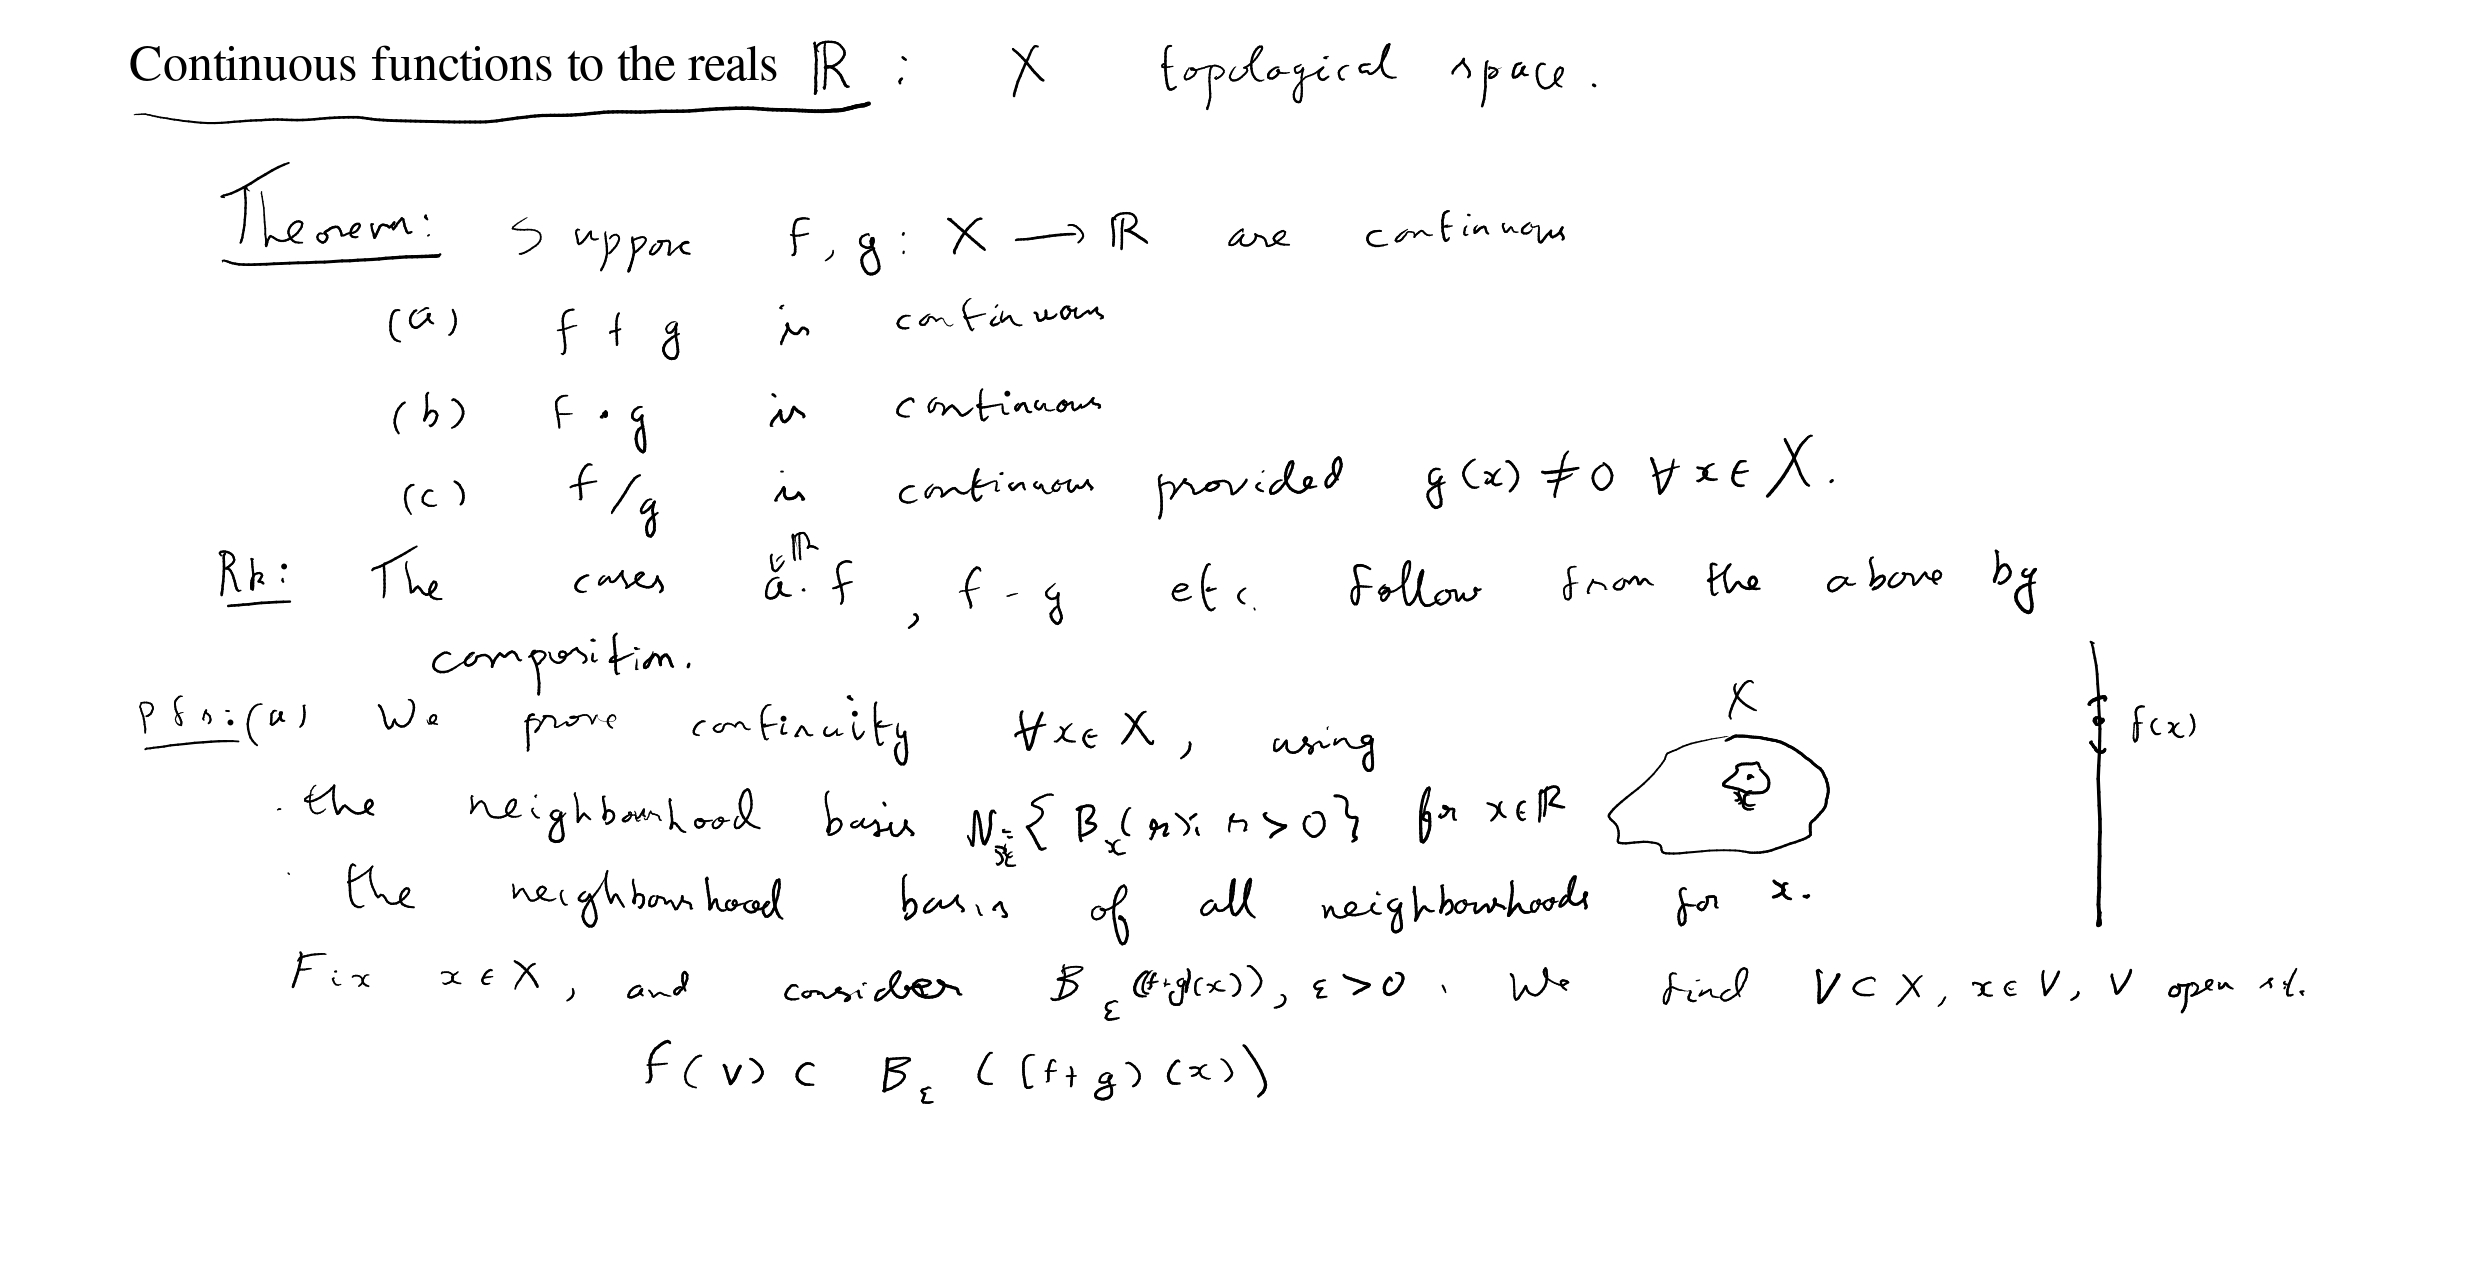 Continuous functions to the reals ℝ : X topological space.
Theorem: Suppose f, g : X ⟶ ℝ are continuous
(a) f + g is continuous
(b) f • g is continuous
(c) f/g is continuous provided g(x) ≠ 0 ∀ x ∈ X.
∈ℝ
Rk: The cases a.f , f - g etc. follow from the above by
composition.
X
Pfs: (a) We prove continuity ∀x∈X, using
f(x)
. the neighbourhood basis N_x = { B_x(r): r > 0 } for x∈ℝ
x
. the neighbourhood basis of all neighbourhoods for x.
Fix x ∈ X, and consider B_ε((f+g)(x)), ε > 0. We find V ⊂ X, x ∈ V, V open st.
f(V) ⊂ B_ε ((f+g)(x))